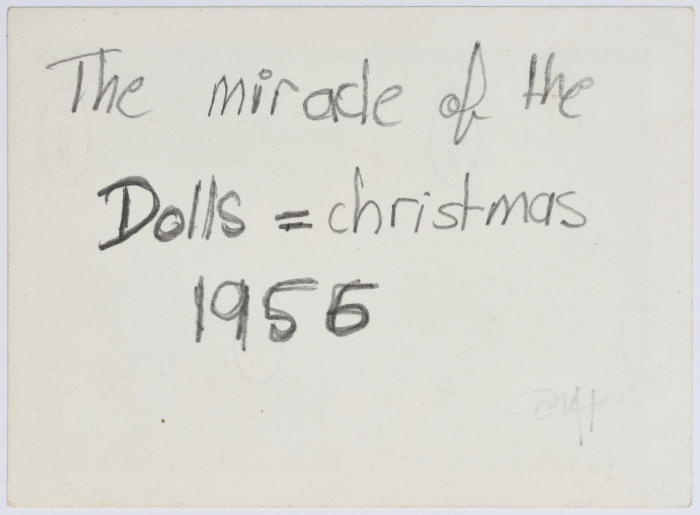 The miracle of the
Dolls = christmas
1955